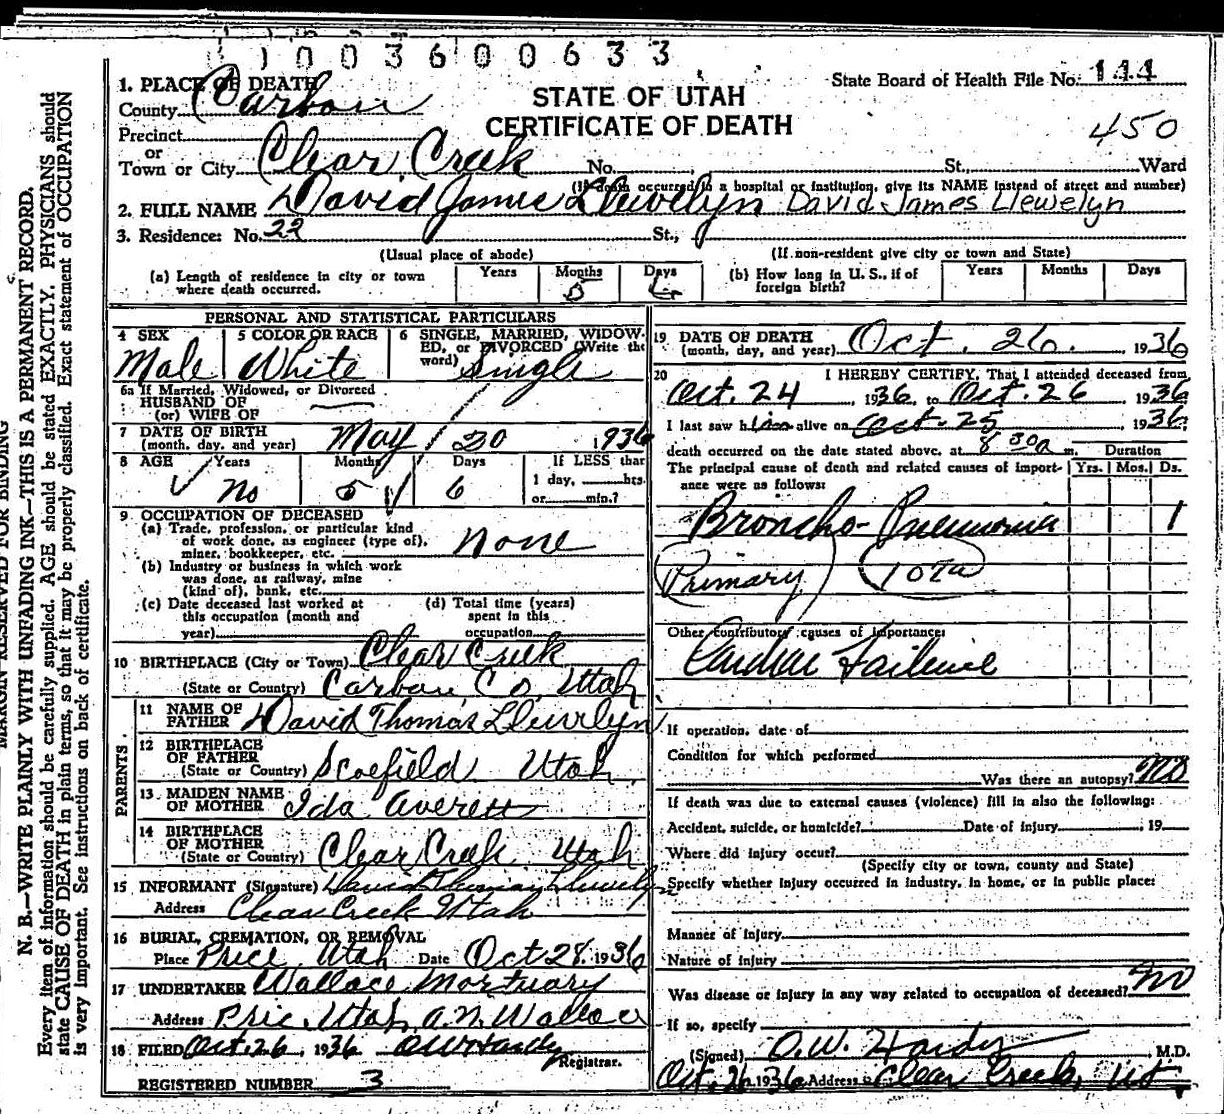 1003600633
1. PLACE OF DEATH
State Board of Health File No. 144
County Carbon
STATE OF UTAH
CERTIFICATE OF DEATH
450
Precinct
or
Town or City Clear Creek No. St., Ward
(If death occurred in a hospital or institution, give its NAME instead of street and number)
2. FULL NAME David James Llewelyn David James Llewelyn
3. Residence: No. 22 St.,
(Usual place of abode) (If non-resident give city or town and State)
(a) Length of residence in city or town where death occurred. Years Months 5 Days 6
(b) How long in U. S., if of foreign birth? Years Months Days
PERSONAL AND STATISTICAL PARTICULARS
4 SEX Male
5 COLOR OR RACE White
6 SINGLE, MARRIED, WIDOWED, or DIVORCED (Write the word) Single
6a If Married, Widowed, or Divorced
HUSBAND OF
(or) WIFE OF
7 DATE OF BIRTH
(month, day, and year) May 20 1936
8 AGE Years No Months 5 Days 6 If LESS than
1 day, hrs.
or min.?
9 OCCUPATION OF DECEASED
(a) Trade, profession, or particular kind
of work done, as engineer (type of),
miner, bookkeeper, etc. None
(b) Industry or business in which work
was done, as railway, mine
(kind of), bank, etc.
(c) Date deceased last worked at
this occupation (month and
year)
(d) Total time (years)
spent in this
occupation
10 BIRTHPLACE (City or Town) Clear Creek
(State or Country) Carbon Co. Utah
PARENTS
11 NAME OF
FATHER David Thomas Llewelyn
12 BIRTHPLACE
OF FATHER
(State or Country) Scofield Utah
13 MAIDEN NAME
OF MOTHER Ida Averett
14 BIRTHPLACE
OF MOTHER
(State or Country) Clear Creek Utah
15 INFORMANT (Signature) David Thomas Llewelyn
Address Clear Creek Utah
16 BURIAL, CREMATION, OR REMOVAL
Place Price, Utah Date Oct 28, 1936
17 UNDERTAKER Wallace Mortuary
Address Price, Utah A.N. Wallace
18 FILED Oct. 26, 1936 O W Hardy
Registrar.
REGISTERED NUMBER 3
19 DATE OF DEATH
(month, day, and year) Oct. 26. 1936
20 I HEREBY CERTIFY, That I attended deceased from
Oct. 24, 1936, to Oct. 26 1936
I last saw him alive on Oct. 25, 1936.
death occurred on the date stated above, at 8 30a m. Duration
The principal cause of death and related causes of importance were as follows: Yrs. Mos. Ds.
Broncho-Pneumonia 1
(Primary) 107a
Other contributory causes of importance:
Cardiac Failure
If operation, date of
Condition for which performed
Was there an autopsy? No
If death was due to external causes (violence) fill in also the following:
Accident, suicide, or homicide? Date of injury , 19
Where did injury occur?
(Specify city or town, county and State)
Specify whether injury occurred in industry, in home, or in public place:
Manner of injury
Nature of injury
Was disease or injury in any way related to occupation of deceased? No
If so, specify
(Signed) O.W. Hardy, M.D.
Oct. 26 1936 Address Clear Creek, Ut
MARGIN RESERVED FOR BINDING
N. B.—WRITE PLAINLY WITH UNFADING INK—THIS IS A PERMANENT RECORD.
Every item of information should be carefully supplied. AGE should be stated EXACTLY. PHYSICIANS should
state CAUSE OF DEATH in plain terms, so that it may be properly classified. Exact statement of OCCUPATION
is very important. See instructions on back of certificate.